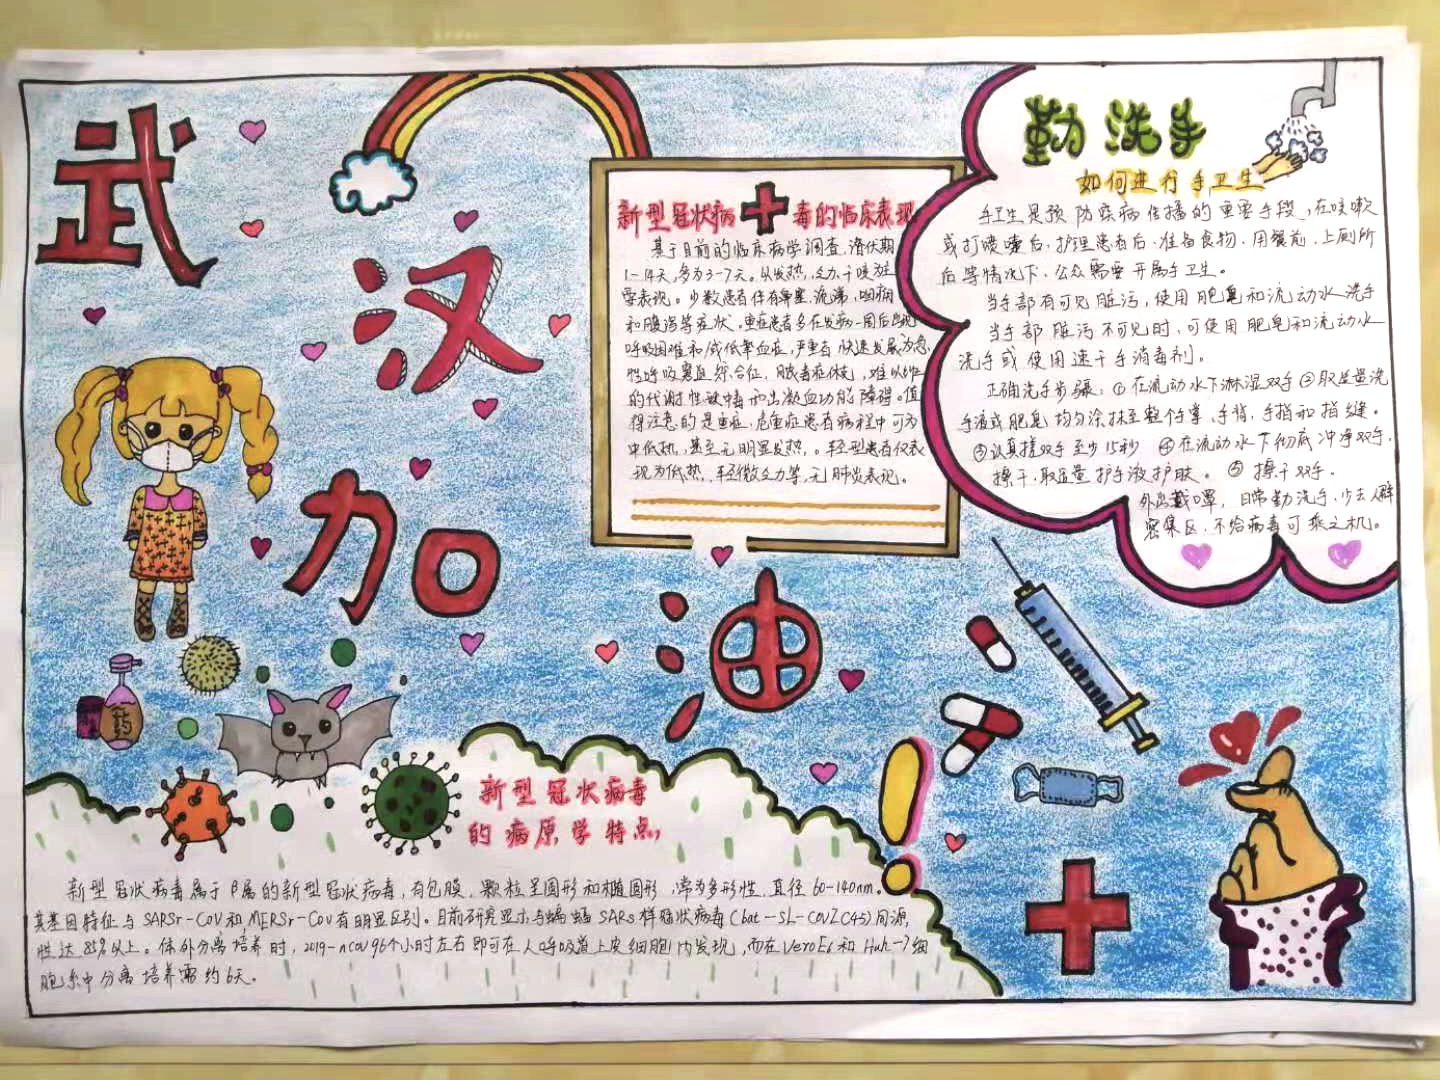 武
汉
加
油！
新型冠状病毒的临床表现
基于目前的临床病学调查，潜伏期
1-14天，多为3-7天。以发热、乏力、干咳为主
要表现。少数患者伴有鼻塞、流涕、咽痛
和腹泻等症状。重症患者多在发病一周后出现
呼吸困难和/或低氧血症，严重者快速发展为急
性呼吸窘迫综合征、脓毒症休克，难以纠正
的代谢性酸中毒和出凝血功能障碍。值
得注意的是重症、危重症患者病程中可为
中低热，甚至无明显发热。轻型患者仅表
现为低热、轻微乏力等，无肺炎表现。
勤洗手
如何进行手卫生
手卫生是预防疾病传播的重要手段，在咳嗽
或打喷嚏后，护理患者后、准备食物、用餐前、上厕所
后等情况下，公众需要开展手卫生。
当手部有可见脏污，使用肥皂和流动水洗手
当手部脏污不可见时，可使用肥皂和流动水
洗手或使用速干手消毒剂。
正确洗手步骤：①在流动水下淋湿双手②取适量洗
手液或肥皂均匀涂抹至整个手掌、手背、手指和指缝。
③认真搓双手至少15秒 ④在流动水下彻底冲净双手，
擦干，取适量护手液护肤。⑤擦干双手。
外出戴口罩，日常勤洗手，少去人群
密集区，不给病毒可乘之机。
药
新型冠状病毒
的病原学特点，
新型冠状病毒属于β属的新型冠状病毒，有包膜，颗粒呈圆形和椭圆形，常为多形性，直径60-140nm。
其基因特征与SARSr-CoV和MERSr-CoV有明显区别。目前研究显示与蝙蝠SARS样冠状病毒(bat-SL-CoVZC45)同源
性达85%以上。体外分离培养时，2019-nCoV96个小时左右即可在人呼吸道上皮细胞内发现，而在VeroE6和Huh-7细
胞系中分离培养需约6天。